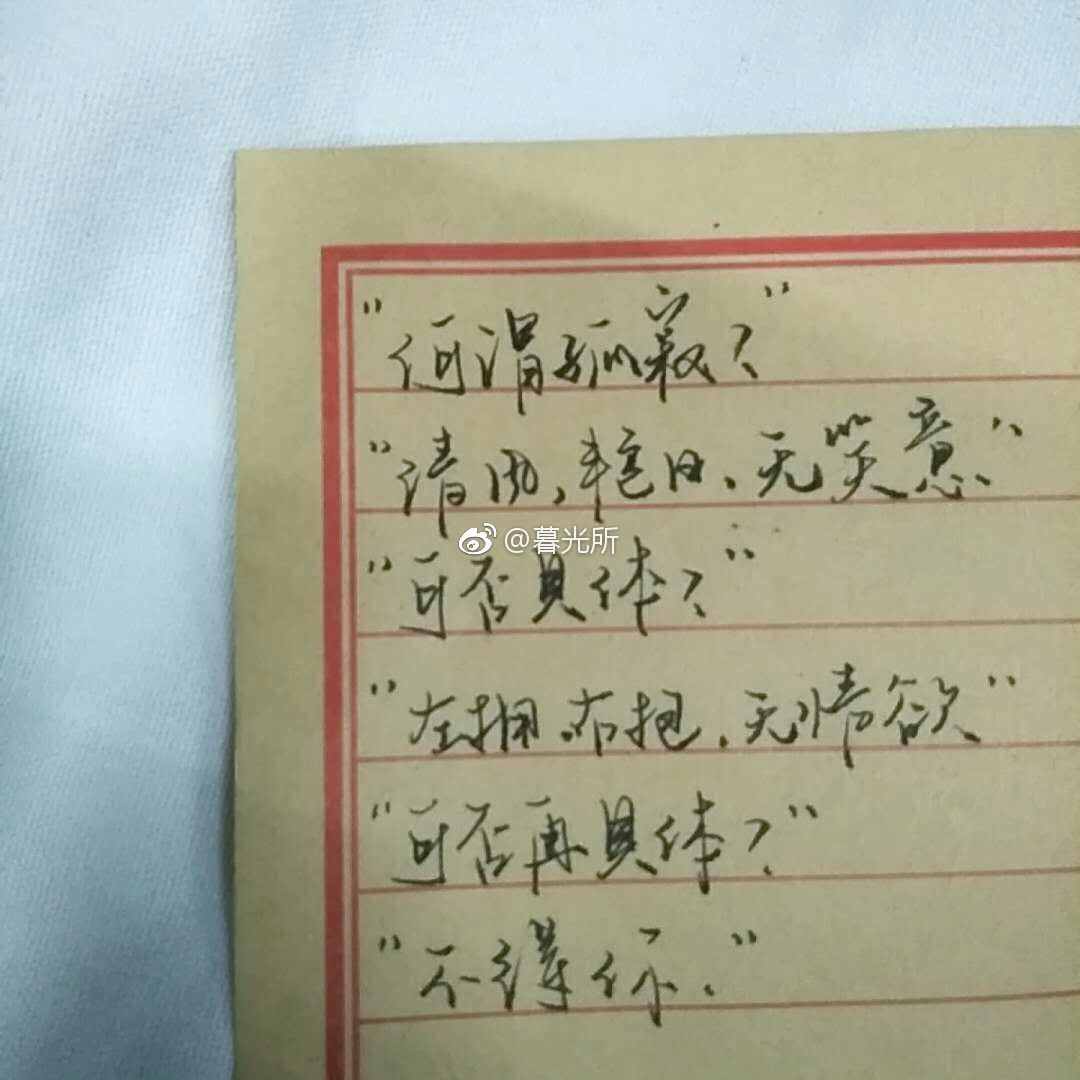 "何谓孤寂？"
"清风，艳日，无笑意"
@暮光所
"可否具体？"
"左拥右抱，无情欲"
"可否再具体？"
"不得你。"